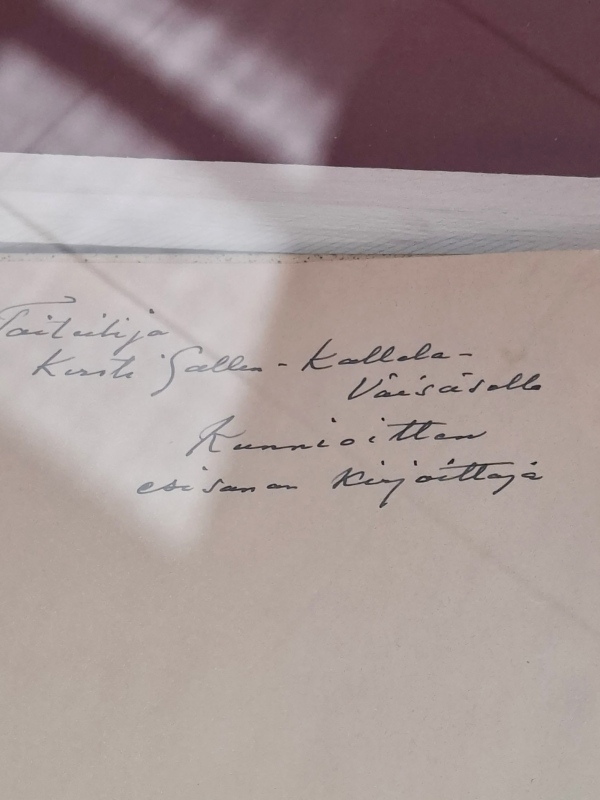 Taiteilija
Kirsti Gallen-Kallela-
Väisäselle
Kunnioittaen
esisanan kirjoittaja